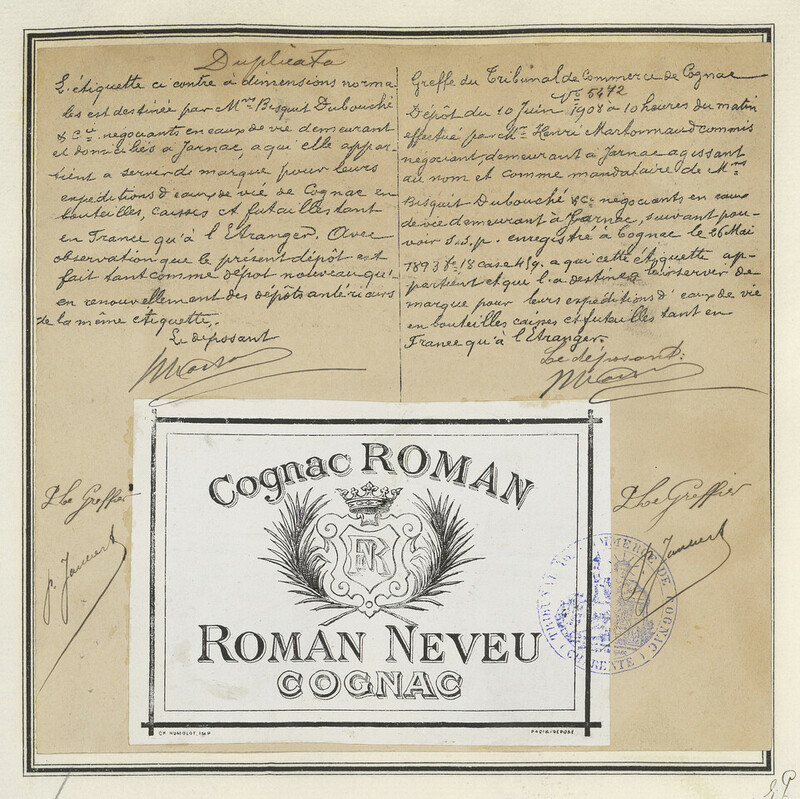 Duplicata
L'étiquette ci contre à dimensions norma-
les est destinée par Mrs Bisquit Dubouché
& Cie négociants en eaux de vie demeurant
et domiciliés à Jarnac, a qui elle appar-
tient a servir de marque pour leurs
expéditions d'eaux de vie de Cognac en
bouteilles, caisses et futailles tant
en France qu'à l'Etranger. Avec
observation que le présent dépôt est
fait tant comme dépôt nouveau qu'
en renouvellement des dépôts antérieurs
de la même étiquette.
Le déposant
Greffe du Tribunal de Commerce de Cognac
No 5472
Dépôt du 10 Juin 1908 à 10 heures du matin
effectué par Mr Henri Martonnaud commis
négociant, demeurant à Jarnac agissant
au nom et comme mandataire de Mrs
Bisquit Dubouché & Cie négociants en eaux
de vie demeurant à Jarnac, suivant pou-
voir s.s.p. enregistré à Cognac le 26 Mai
1893 fo 18 case 459. a qui cette étiquette ap-
partient et qui l'a destinée à servir de
marque pour leurs expéditions d'eaux de vie
en bouteilles caisses et futailles tant en
France qu'à l'Etranger.
Le déposant:
Cognac ROMAN
RN
ROMAN NEVEU
COGNAC
CH. HUMBLOT, IMP
Le Greffier
p. Jaumet
Le Greffier
TRIBUNAL DE COMMERCE DE COGNAC
(CHARENTE)